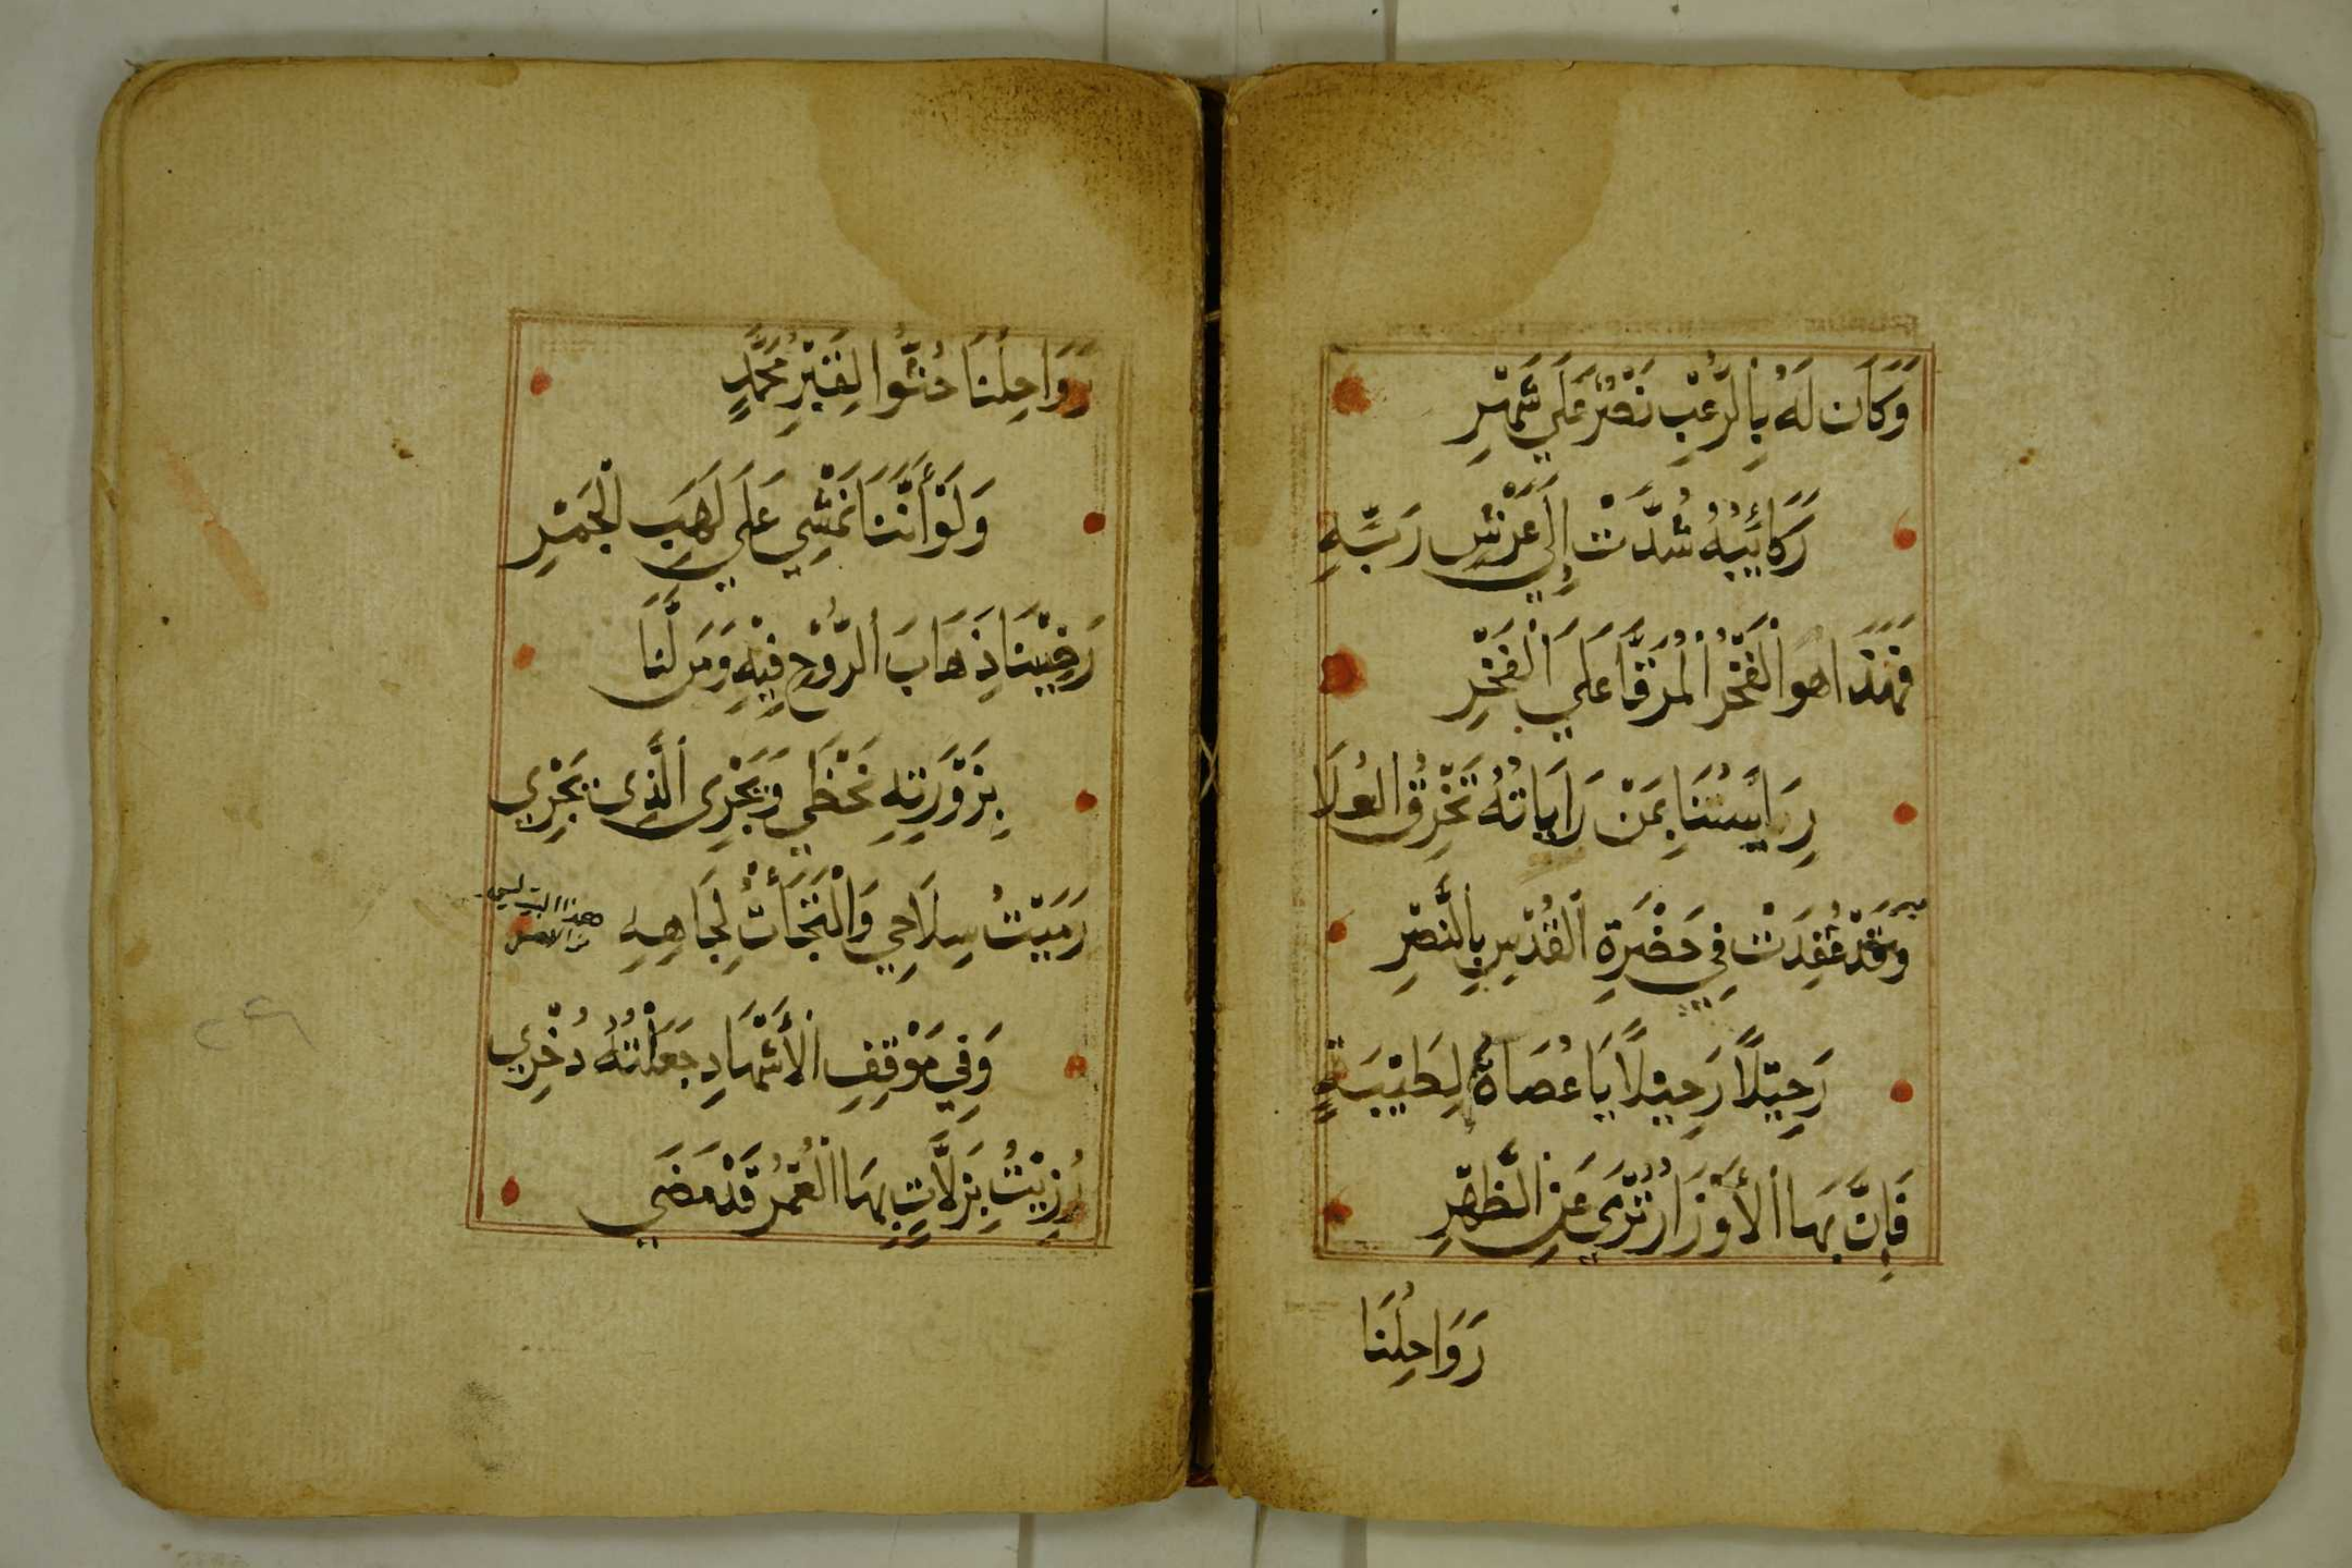 وَكَانَ لَهُ بِالرُّعْبِ نَصْرٌ عَلَي شَهْرِ
رَكَائِبُهُ شُدَّتْ إِلَي عَرْشِ رَبِّهِ
فَهَذَا هُوَ الْفَخْرُ الْمُرَقَّا عَلَي الْفَخْرِ
رِيَاسَتُنَا بِمَنْ رَايَاتُهُ تَخْرِقُ الْعُلَا
وَقَدْ عُقِدَتْ فِي حَضْرَةِ الْقُدْسِ بِالنَّصْرِ
رَحِيْلًا رَحِيْلًا يَا عُصَاةُ لِطَيْبَةٍ
فَإِنَّ بِهَا الْأَوْزَارُ تُرْمَي عَنِ الظَّهْرِ
رَوَاحِلُنَا
رَوَاحِلُنَا حُثُّوا لِقَبْرِ مُحَمَّدٍ
وَلَوْ أَنَّنَا نَمْشِي عَلَي لَهَبِ الْجَمْرِ
رَضِيْنَا ذِهَابَ الرُّوْحِ فِيْهِ وَمَنْ لَنَا
بِزَوْرَتِهِ نَحْظَي وَيَجْرِي الَّذِي يَجْرِي
رَمَيْتُ سِلَاحِي وَالْتَجَأْتُ لِجَاهِهِ
هذا البيت ليس
من الاصل
وَفِي مَوْقِفِ الْأَشْهَادِ جَعَلْتُهُ ذُخْرِي
رُزِيْتُ بِزَلَّاتٍ بِهَا الْعُمْرُ قَدْ مَضَي